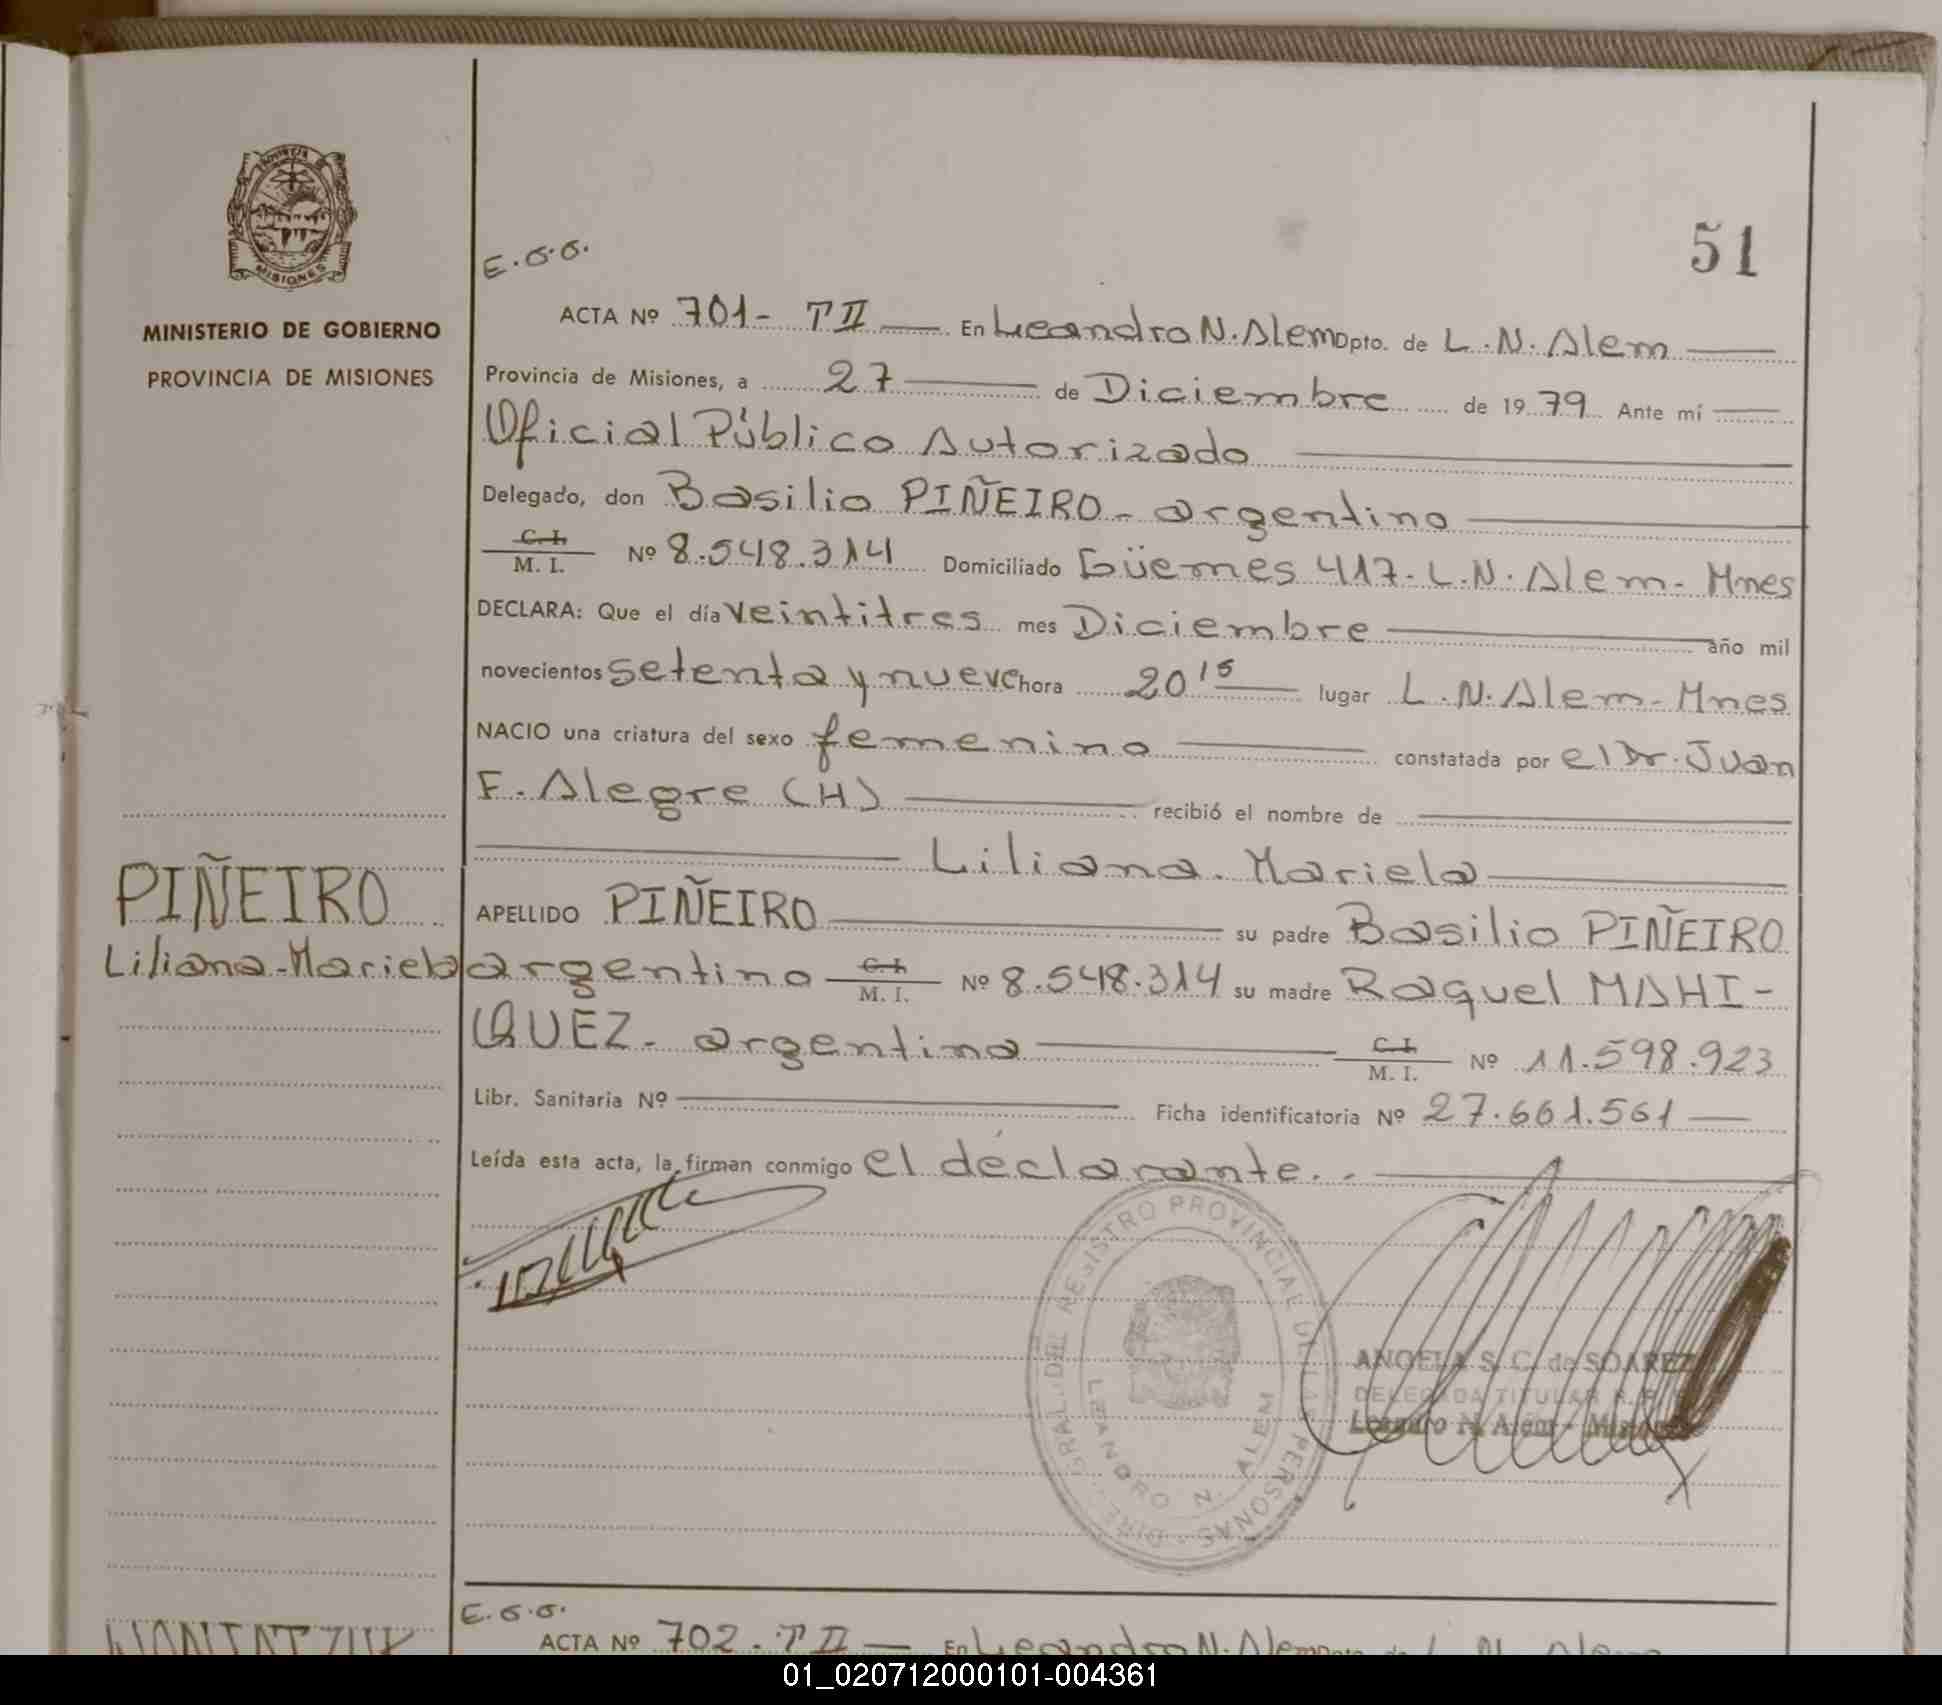 PROVINCIA DE
MISIONES
MINISTERIO DE GOBIERNO
PROVINCIA DE MISIONES
51
E.G.G.
ACTA Nº 701- TII — En Leandro N. Alem Dpto. de L.N. Alem —
Provincia de Misiones, a 27 — de Diciembre de 1979 Ante mí —
Oficial Público Autorizado —
Delegado, don Basilio PIÑEIRO - argentino —
C.I. / M. I. Nº 8.548.314 Domiciliado Güemes 417- L.N. Alem - Mnes
DECLARA: Que el día veintitres mes Diciembre — año mil
novecientos setenta y nueve hora 20 15 — lugar L.N. Alem - Mnes
NACIO una criatura del sexo femenino — constatada por el Dr. Juan
F. Alegre (H) — recibió el nombre de —
— Liliana. Mariela —
PIÑEIRO
Liliana-Mariela
APELLIDO PIÑEIRO — su padre Basilio PIÑEIRO
argentino — C.I. / M. I. Nº 8.548.314 su madre Raquel MAHI-
QUEZ - argentina — C.I. / M. I. Nº 11.598.923
Libr. Sanitaria Nº — Ficha identificatoria Nº 27.661.561 —
Leída esta acta, la firman conmigo el declarante. —
GRAL. DEL REGISTRO PROVINCIAL DE LAS PERSONAS
LEANDRO N. ALEM
ANGELA S. C. de SOAREZ
DELEGADA TITULAR R. P.
Leandro N. Alem - Misiones
E.G.G.
ACTA Nº 702. TII — En Leandro N. Alem Dpto. de L. N. Alem
01_020712000101-004361